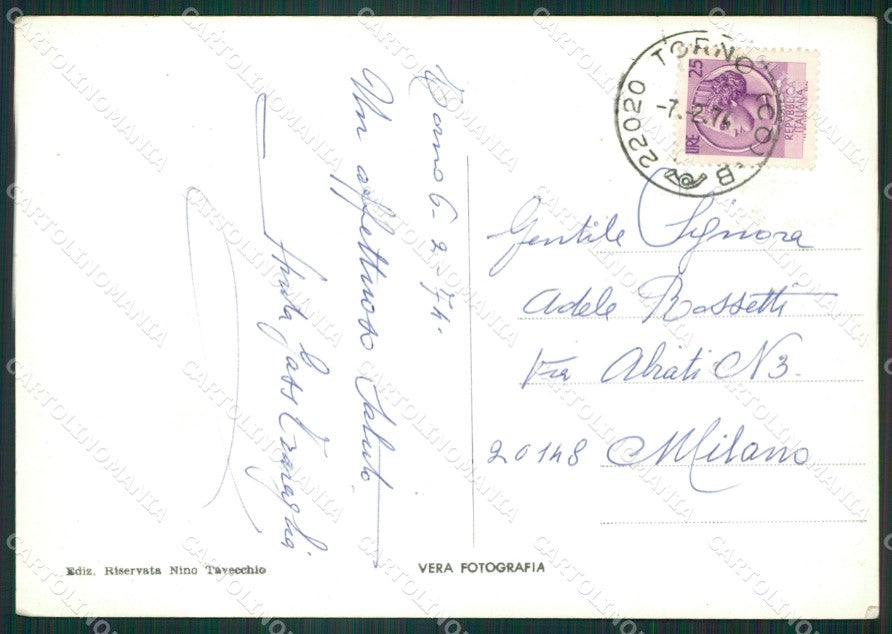 Torno 6-2-74.
Un affettuoso saluto
Anita
22020 TORNO (CO) B
-7.-2.74
LIRE 25
REPVBBLICA
ITALIANA
Gentile Signora
Adele Rossetti
Via Abiati N3.
20148 Milano
Ediz. Riservata Nino Tavecchio
VERA FOTOGRAFIA
CARTOLINOMANIA